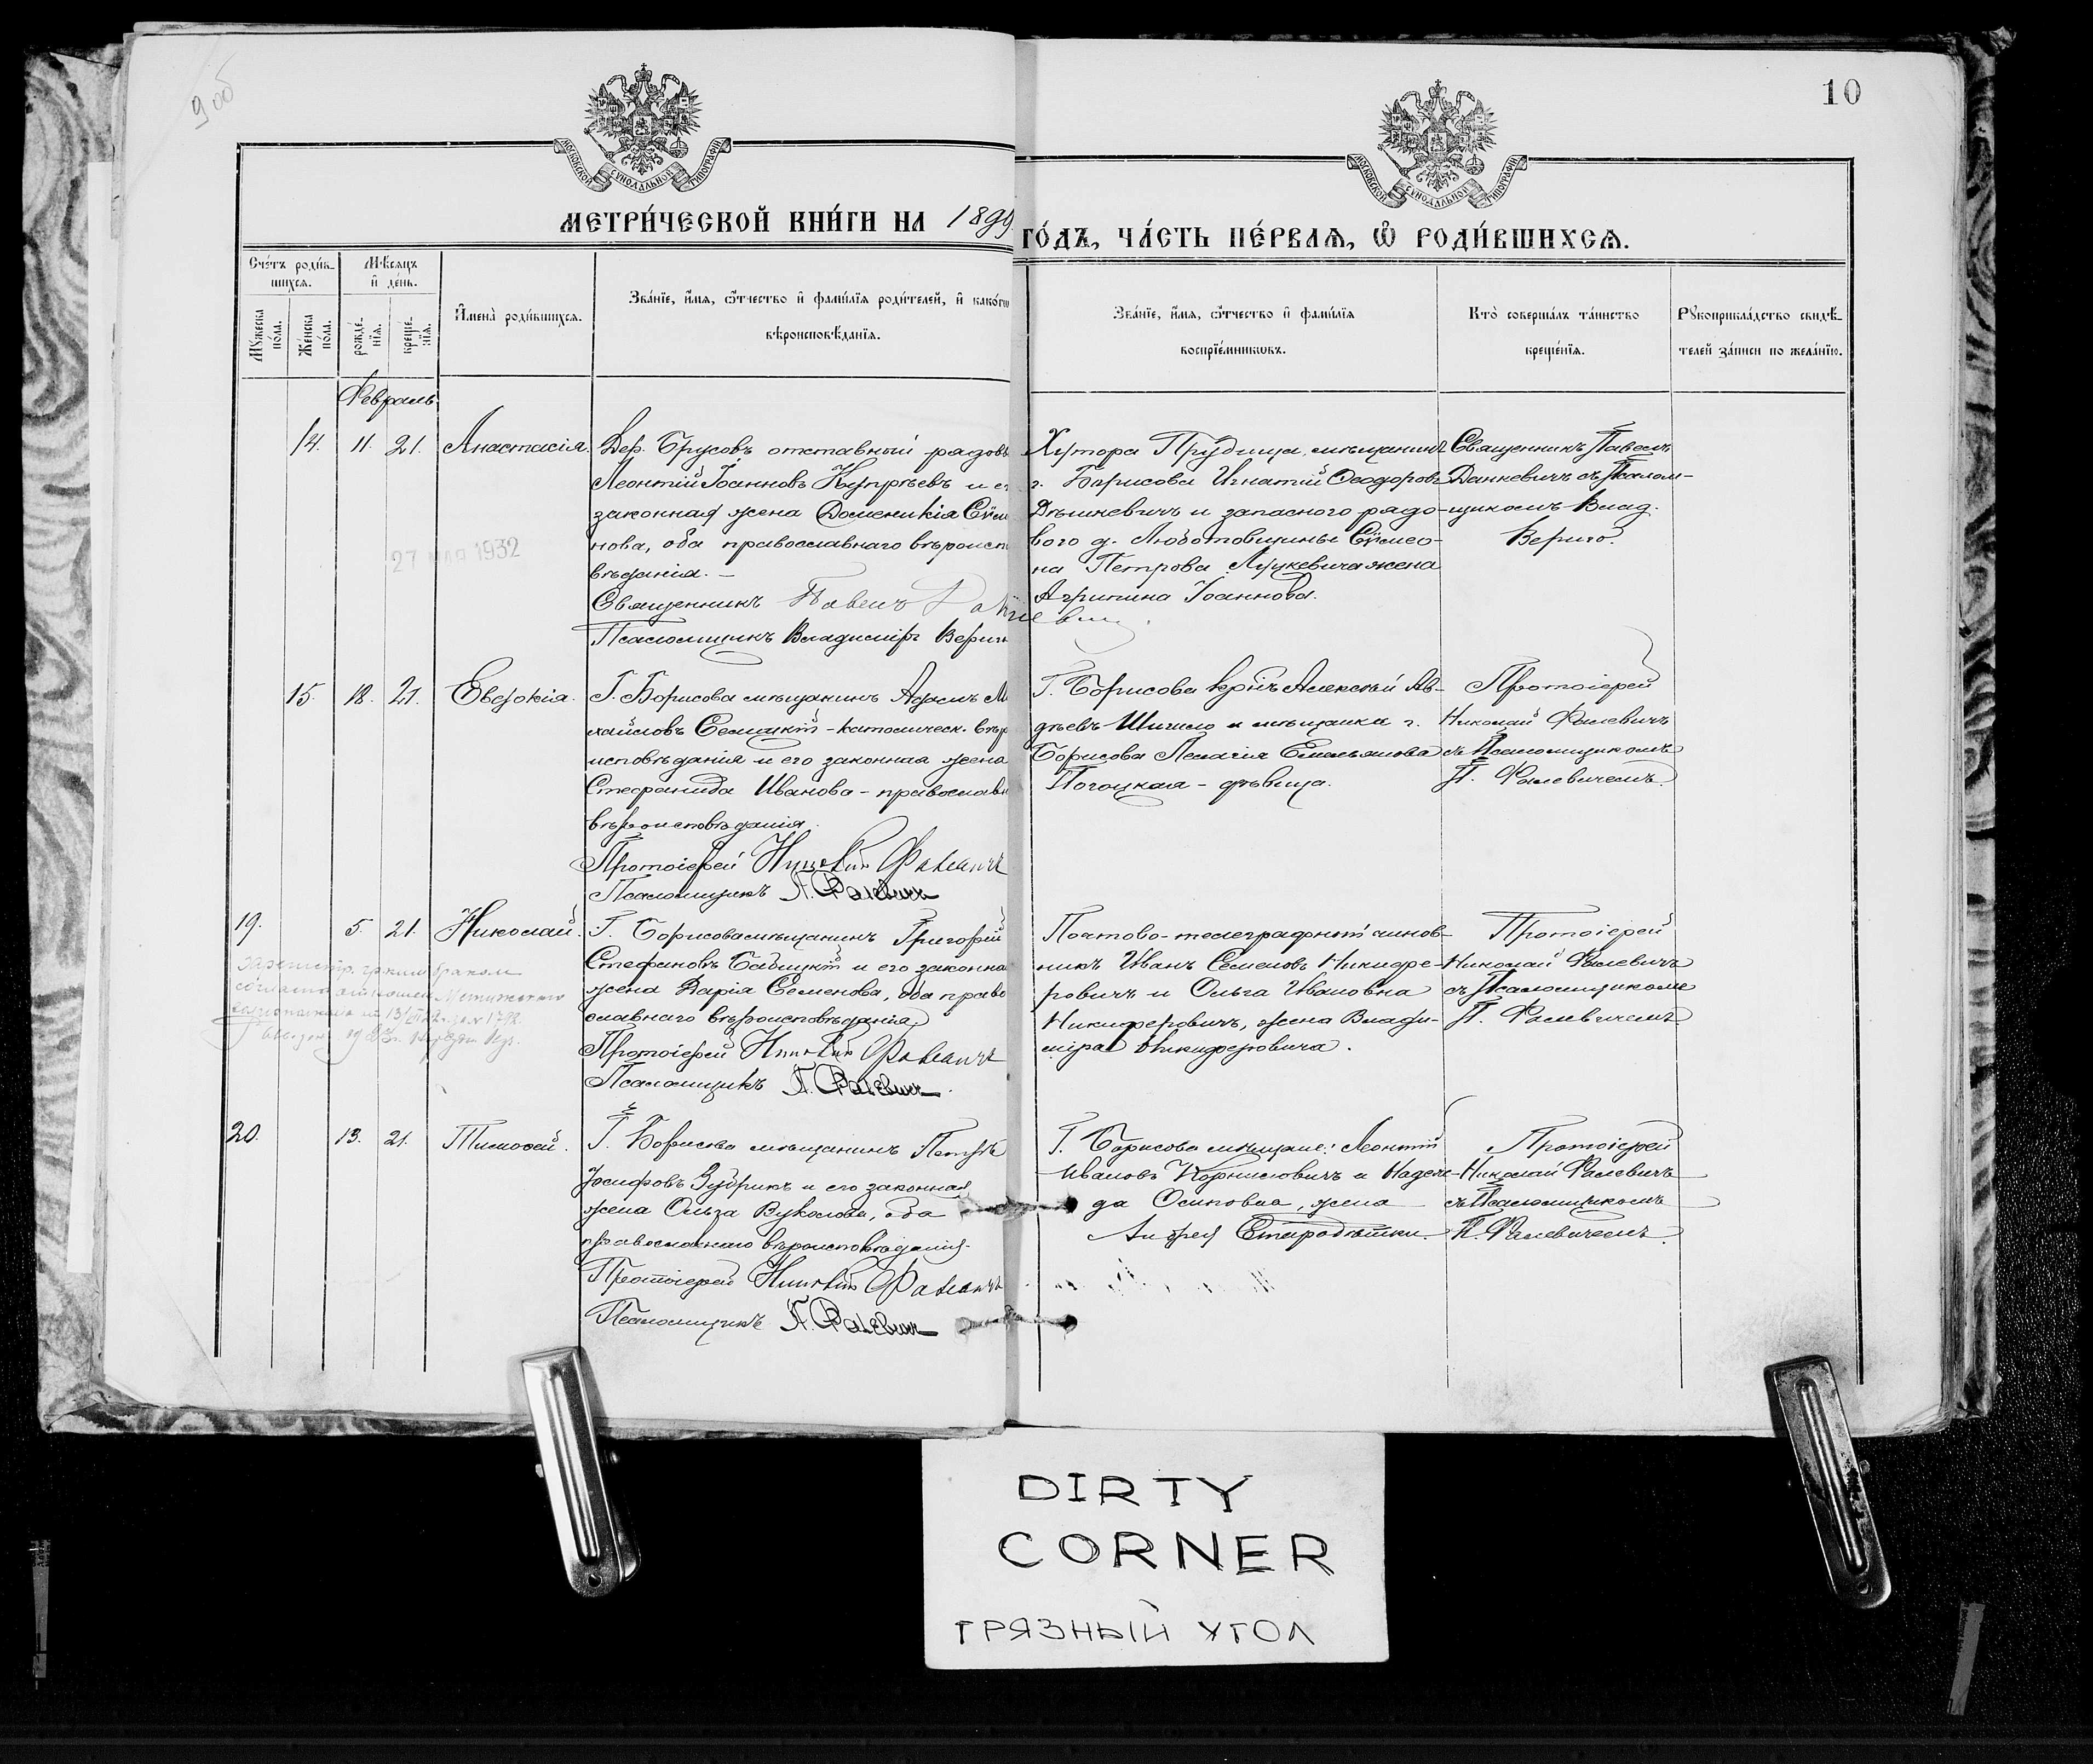 9 об
10
МОСКОВСКОЙ СѴНОДАЛЬНОЙ ТИПОГРАФІИ
МОСКОВСКОЙ СѴНОДАЛЬНОЙ ТИПОГРАФІИ
МЕТРИ́ЧЕСКОЙ КНИ́ГИ НА 1899
ГО́ДЪ, ЧА́СТЬ ПЕ́РВАѦ, Ѡ҆ РОДИ́ВШИХСѦ.
Сче́тъ роди́в-
шихсѧ.
Мѣ́сѧцъ
и҆ де́нь.
Мꙋ́жеска
по́ла.
Же́нска
по́ла.
рожде́-
нїѧ.
креще́-
нїѧ.
И҆мена̀ роди́вшихсѧ.
Зва́нїе, и҆́мѧ, ѻ҆́тчество и҆ фами́лїѧ роди́телей, и҆ како́гѡ
вѣроисповѣ́данїѧ.
Зва́нїе, и҆́мѧ, ѻ҆́тчество и҆ фами́лїѧ
воспрїе́мникѡвъ.
Кто̀ соверша́лъ та́инство
креще́нїѧ.
Рꙋкоприкла́дство свидѣ́-
телей за́писи по жела́нїю.
Февраль.
14. 11. 21. Анастасія.
Дер. Брусовъ отставный рядов
Леонтій Іоанновъ Купрѣевъ и е
законная жена Доменикія Сѵме
нова, оба православнаго вѣроисп
вѣданія. —
Священникъ Павелъ Данкевич
Псаломщикъ Владиміръ Вериг
27 МАЯ 1932
Хутора Прудища мѣщанинъ
г. Борисова Игнатій Ѳеодоровъ
Дѣшкевичъ и запасного рядо-
вого д. Люботовщины Сѵмео-
на Петрова Луцкевича жена
Агрипина Іоаннова.
Священникъ Павелъ
Данкевичъ съ Псалом-
щикомъ Влад.
Вериго.
15. 18. 21. Евдокія.
Г. Борисова мѣщанинъ Адамъ М
хайловъ Селицкій - католическ. вѣр
исповѣданія и его законная жена
Стефанида Иванова - православн
вѣроисповѣданія.
Протоіерей Николай Фалевичъ
Псаломщикъ П. Фалевичъ
Г. Борисова Алексѣй Ав-
дѣевъ Шишло и мѣщанка г.
Борисова Пелагія Емельянова
Потоцкая - дѣвица.
Протоіерей
Николай Фалевичъ
съ Псаломщикомъ
П. Фалевичемъ.
19. 5. 21. Николай.
Г. Борисова мѣщанинъ Григорій
Стефановъ Бабицкій и его законна
жена Дарія Семенова, оба право
славнаго вѣроисповѣданія.
Протоіерей Николай Фалевичъ
Псаломщикъ П. Фалевичъ.
Почтово-телеграфный чинов-
никъ Иванъ Семеновъ Никифо-
ровичъ и Ольга Ивановна
Никифоровичъ, жена Влади-
міра Никифоровича.
Протоіерей
Николай Фалевичъ
съ Псаломщикомъ
П. Фалевичемъ.
20. 13. 21. Тимоѳей.
Г. Борисова мѣщанинъ Петръ
Іосифовъ Зубрикъ и его законная
жена Ольга Вуколова, оба
православнаго вѣроисповѣданія.
Протоіерей Николай Фалевичъ
Псаломщикъ П. Фалевичъ
Г. Борисова мѣщане: Леонтій
Ивановъ Корниловичъ и Надеж-
да Осиповна, жена
Андрея Стародѣтки.
Протоіерей
Николай Фалевичъ
съ Псаломщикомъ
П. Фалевичемъ.
DIRTY
CORNER
ГРЯЗНЫЙ УГОЛ